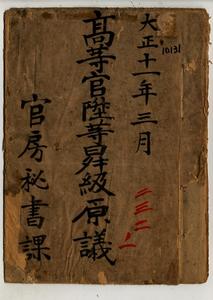 大正十一年三月
10131
高等官陞等昇級原議
二三二ノ1
官房秘書課